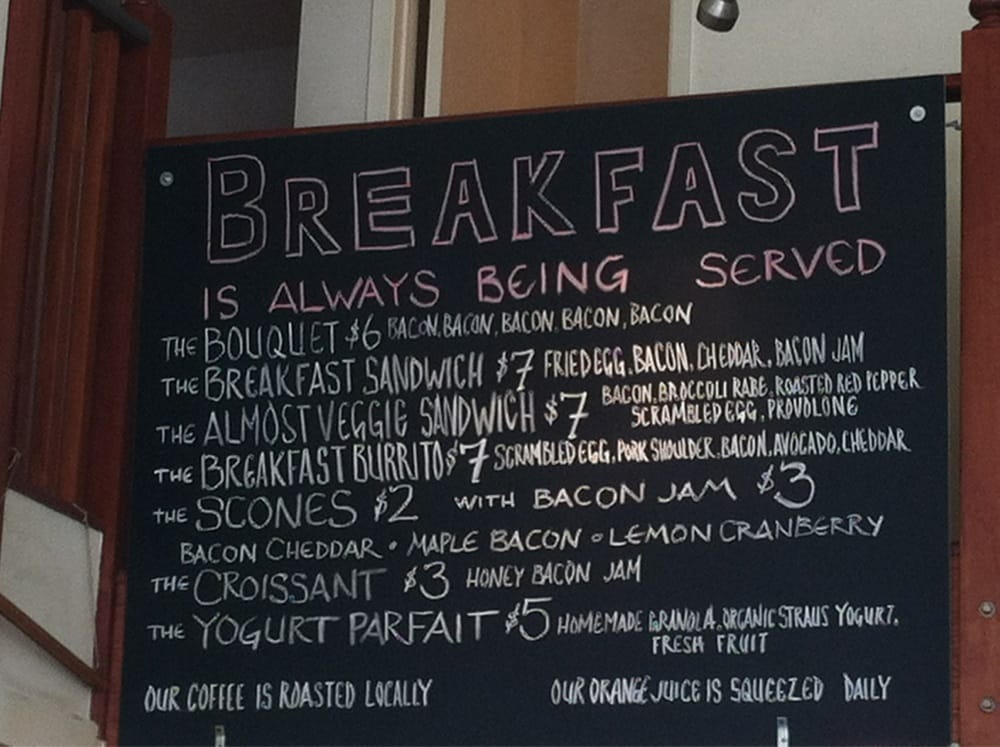 BREAKFAST
IS ALWAYS BEING SERVED
THE BOUQUET $6 BACON, BACON, BACON, BACON, BACON
THE BREAKFAST SANDWICH $7 FRIED EGG, BACON, CHEDDAR, BACON JAM
THE ALMOST VEGGIE SANDWICH $7 BACON, BROCCOLI RABE, ROASTED RED PEPPER
SCRAMBLED EGG, PROVOLONE
THE BREAKFAST BURRITO $7 SCRAMBLED EGG, PORK SHOULDER, BACON, AVOCADO, CHEDDAR
THE SCONES $2 WITH BACON JAM $3
BACON CHEDDAR • MAPLE BACON • LEMON CRANBERRY
THE CROISSANT $3 HONEY BACON JAM
THE YOGURT PARFAIT $5 HOMEMADE GRANOLA, ORGANIC STRAUS YOGURT,
FRESH FRUIT
OUR COFFEE IS ROASTED LOCALLY OUR ORANGE JUICE IS SQUEEZED DAILY